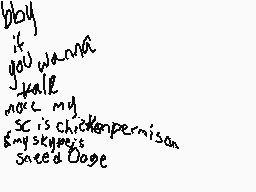 bby
if
you wanna
talk
more my
sc is chickenpermison
& my skype is
sneed Ooge